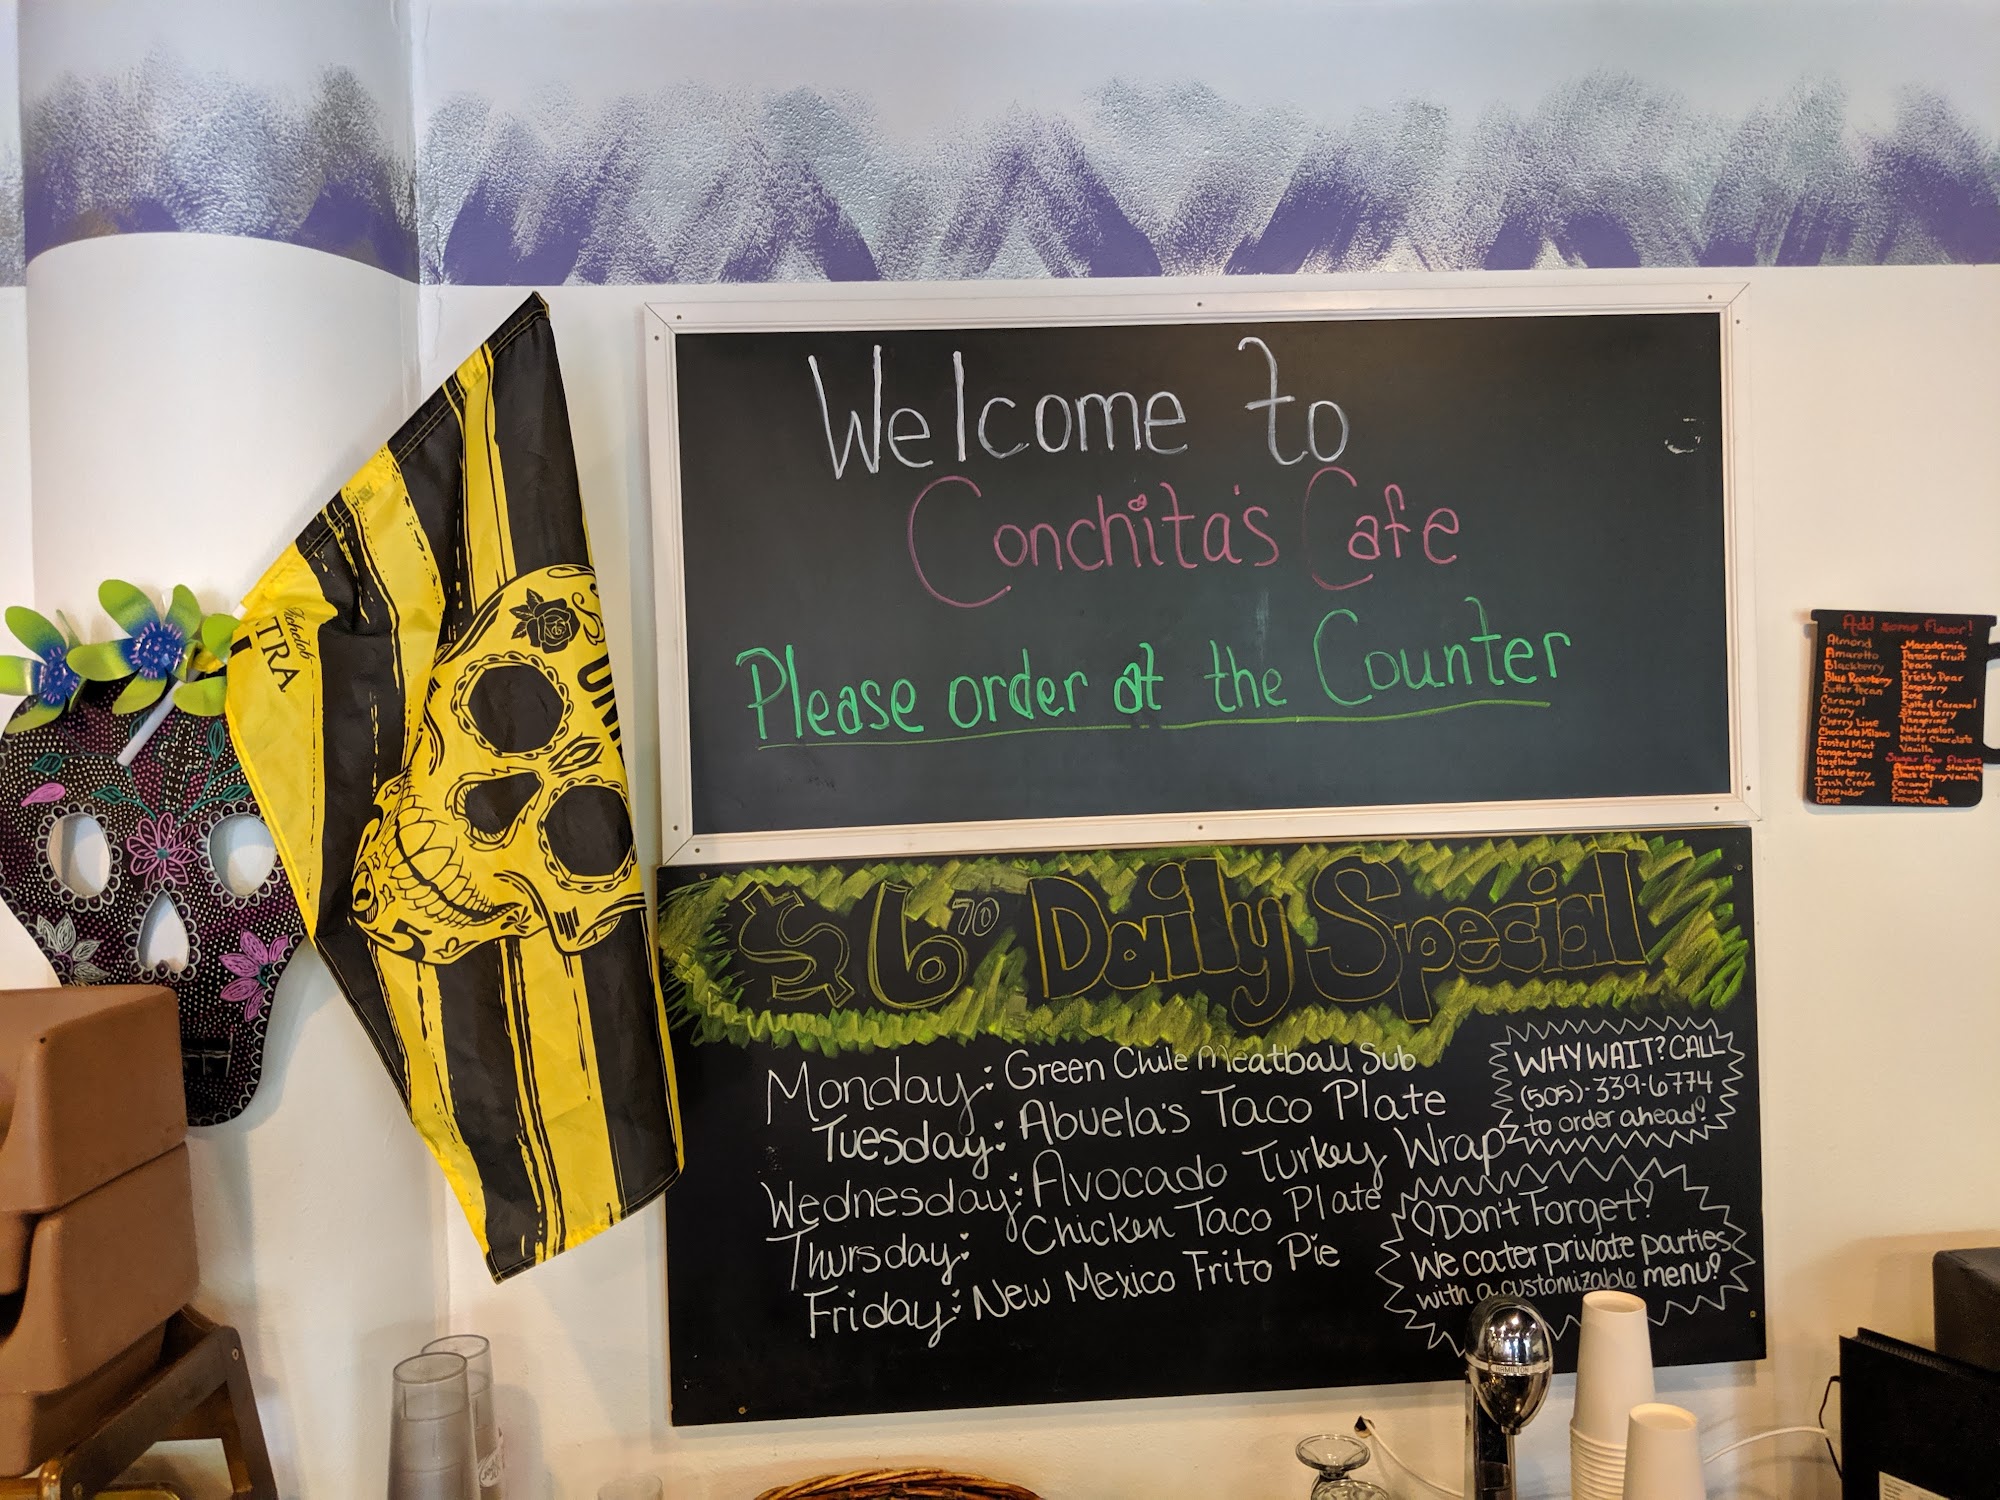 Welcome to
Conchita's Cafe
Please order at the Counter
$6 70 Daily Special
Monday: Green Chile Meatball Sub
Tuesday: Abuela's Taco Plate
Wednesday: Avocado Turkey Wrap
Thursday: Chicken Taco Plate
Friday: New Mexico Frito Pie
WHY WAIT? CALL
(505)-339-6774
to order ahead!
Don't Forget!
We cater private parties
with a customizable menu!
Add some flavor!
Almond
Amaretto
Blackberry
Blue Raspberry
Butter Pecan
Caramel
Cherry
Cherry Lime
Chocolate Milano
Frosted Mint
Gingerbread
Hazelnut
Huckleberry
Irish Cream
Lavender
Lime
Macadamia
Passion Fruit
Peach
Prickly Pear
Raspberry
Rose
Salted Caramel
Strawberry
Tangerine
Watermelon
White Chocolate
Vanilla
Sugar Free Flavors
Amaretto
Black Cherry Vanilla
Caramel
Coconut
French Vanilla
TRA
HAMILTON